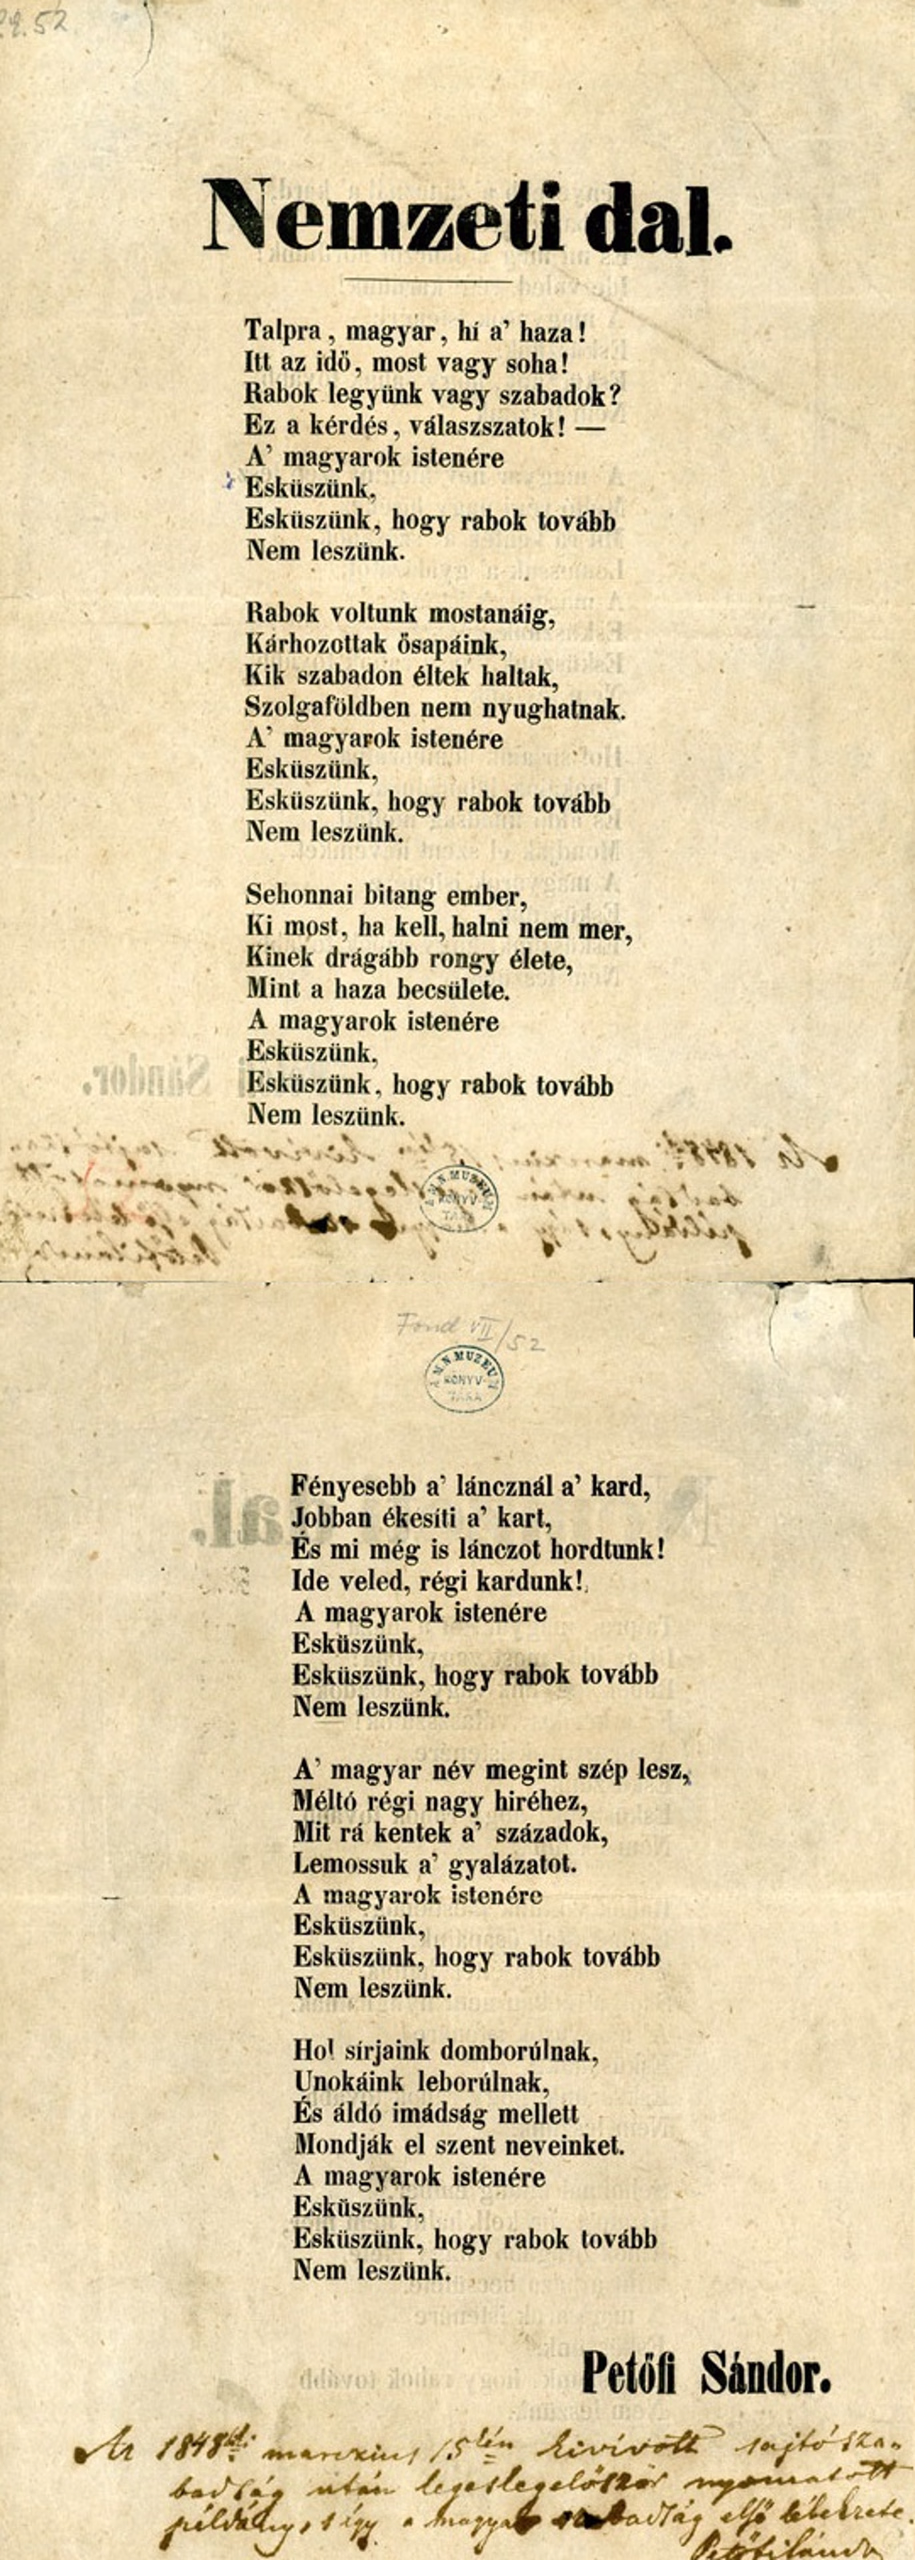 52
Nemzeti dal.
Talpra, magyar, hí a' haza!
Itt az idő, most vagy soha!
Rabok legyünk vagy szabadok?
Ez a kérdés, válaszszatok! —
A' magyarok istenére
Esküszünk,
Esküszünk, hogy rabok tovább
Nem leszünk.
Rabok voltunk mostanáig,
Kárhozottak ősapáink,
Kik szabadon éltek haltak,
Szolgaföldben nem nyughatnak.
A' magyarok istenére
Esküszünk,
Esküszünk, hogy rabok tovább
Nem leszünk.
Sehonnai bitang ember,
Ki most, ha kell, halni nem mer,
Kinek drágább rongy élete,
Mint a haza becsülete.
A magyarok istenére
Esküszünk,
Esküszünk, hogy rabok tovább
Nem leszünk.
M. N. MUZEUM
KÖNYV-
TÁRA
Fond VII/52
M. N. MUZEUM
KÖNYV-
TÁRA
Fényesebb a' láncznál a' kard,
Jobban ékesíti a' kart,
És mi még is lánczot hordtunk!
Ide veled, régi kardunk!
A magyarok istenére
Esküszünk,
Esküszünk, hogy rabok tovább
Nem leszünk.
A' magyar név megint szép lesz,
Méltó régi nagy hiréhez,
Mit rá kentek a' századok,
Lemossuk a' gyalázatot.
A magyarok istenére
Esküszünk,
Esküszünk, hogy rabok tovább
Nem leszünk.
Hol sírjaink domborúlnak,
Unokáink leborúlnak,
És áldó imádság mellett
Mondják el szent neveinket.
A magyarok istenére
Esküszünk,
Esküszünk, hogy rabok tovább
Nem leszünk.
Petőfi Sándor.
Az 1848diki marczius 15kén kivívott sajtósza-
badság után legeslegelőször nyomatott
példány, s így a magyar szabadság első lélekzete.
Petőfi Sándor